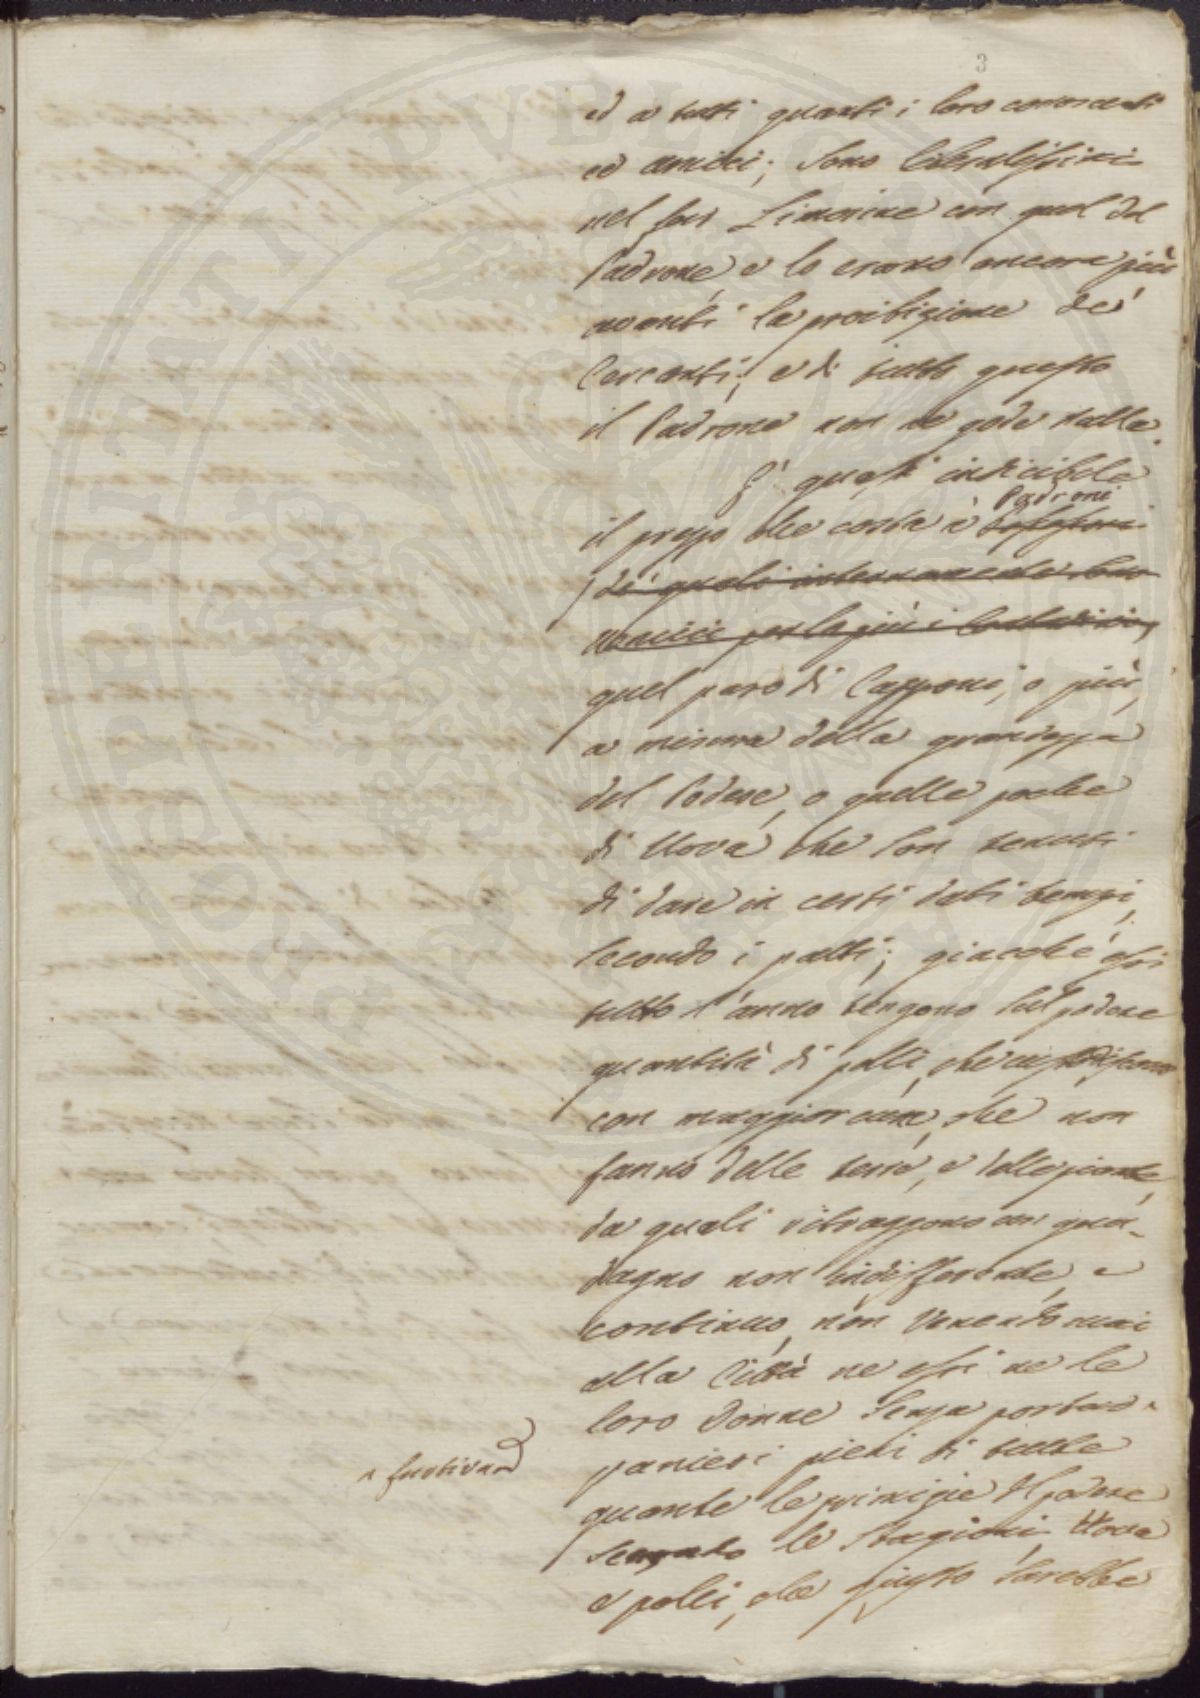 3
ed a tutti quanti i loro conoscenti
ed amici; sono liberalissimi
nel far Limosine con quel del
Padrone, e lo erano ancora più
avanti la proibizione de'
Cercanti; e di tutto questo
il Padrone non ne gode nulla.
E' quasi indicibile
Padroni
il prezzo che costa a'
de' quali internamente son
nemici per lo più i Contadini,
quel paro di Capponi, o più,
a misura della grandezza
del Podere, o quelle poche
di Uova che son tenuti
di dare in certi dati tempi,
secondo i patti; giacchè essi
tutto l'anno tengono sul podere
quantità di polli, che custodiscono
con maggior cura, che non
fanno delle terre, e delle piante,
da quali ritraggono un gua-
dagno non indifferente, e
continuo, non venendo mai
alla Città ne essi ne le
loro donne senza portare ^
^ furtivam.
panieri pieni di tutte
quante le primizie del podere
secondo le Stagioni, Uova
e polli, che giusto sarebbe